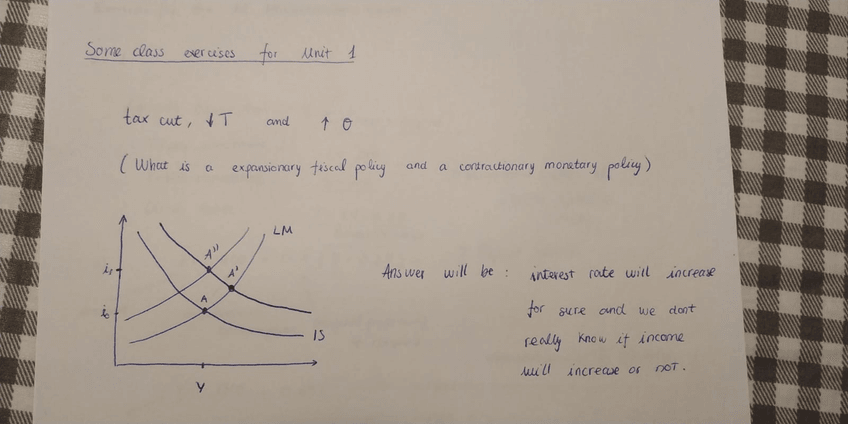 Some class exercises for Unit 1
tax cut, ↓ T and ↑ θ
( What is a expansionary fiscal policy and a contractionary monetary policy )
LM
A''
i₁
A'
A
i₀
IS
Y
Answer will be : interest rate will increase
for sure and we dont
really know if income
will increase or not.